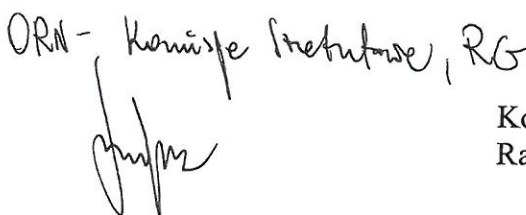 ORN - Komisje Statutowe, RG
Ko
Ra